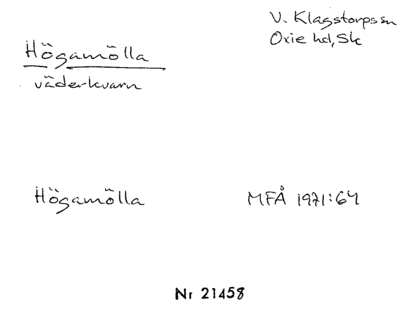 V. Klagstorps sn
Oxie hd, Sk
Högamölla
väderkvarn
Högamölla MFÅ 1971:64
Nr 21458